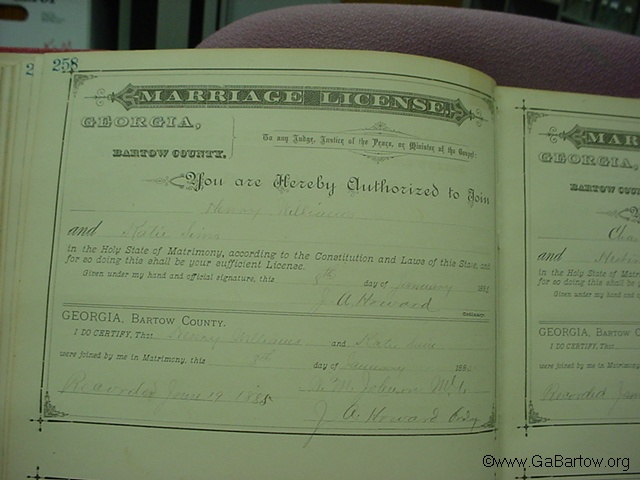 258
MARRIAGE LICENSE.
GEORGIA,
BARTOW COUNTY.
To any Judge, Justice of the Peace, or Minister of the Gospel:
You are Hereby Authorized to Join
Henry Williams
and Katie Sims
in the Holy State of Matrimony, according to the Constitution and Laws of this State, and
for so doing this shall be your sufficient License.
Given under my hand and official signature, this 8th day of January 188
J. A. Howard
Ordinary.
GEORGIA, Bartow County.
I DO CERTIFY, That Henry Williams and Katie Sims
were joined by me in Matrimony, this 8th day of January 188
Recorded Jany 19 1885
J. A. Howard Ordy
MAR
GEORGIA,
BARTOW COUN
Cha
and
in the Holy State of Matrim
for so doing this shall be
Given under my hand and
GEORGIA, Bartow C
I DO CERTIFY, That
were joined by me in Matrimony
Recorded Jan
©www.GaBartow.org